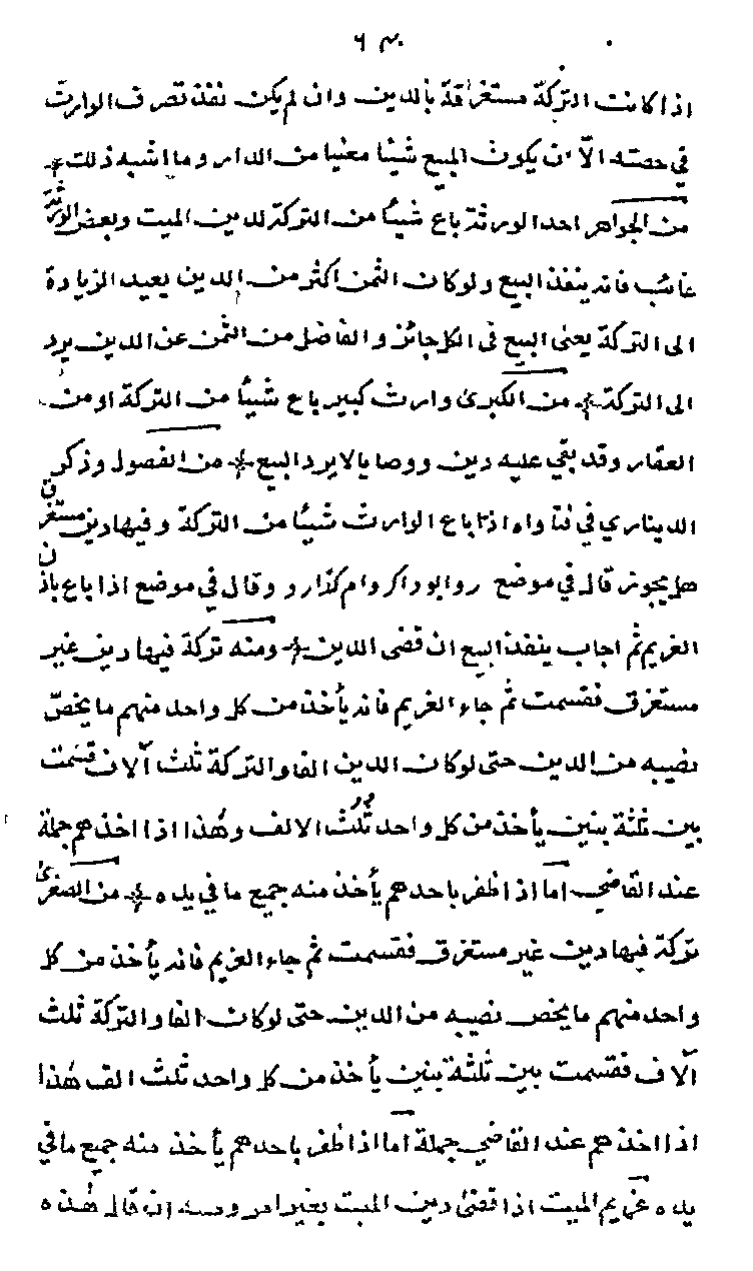 اذا كانت التركة مستغراقة بالدين وان لم يكن نفذ تصرف الوارث
في حصته الا ان يكون المبيع شيئا معنيا من الدار وما اشبه ذلك
من الجواهر احد الورثة باع شيئا من التركة لدين الميت وبعض الورثة
غائب فانه ينفذ البيع ولو كان الثمن اكثر من الدين يعيد الزيادة
الى التركة يعنى البيع في الكل جائز والفاضل من الثمن عن الدين يرد
الى التركة من الكبرى وارث كبير باع شيئا من التركة او من
العقار وقد بقي عليه دين ووصايا لا يرد البيع من الفصول وذكر
الديناري في فتاواه اذا باع الوارث شيئا من التركة وفيها دين مستغرق
هل يجوز قال في موضع روابوداكروام كذارو وقال في موضع اذا باع باذن
الغريم ثم اجاب ينفذ البيع ان قضى الدين ومنه تركة فيها دين غير
مستغرق فقسمت ثم جاء الغريم فانه يأخذ من كل واحد منهم ما يخص
نصيبه من الدين حتى لو كان الدين الفا والتركة ثلث آلاف قسمت
بين ثلثة بنين يأخذ من كل واحد ثلث الالف وهذا اذا اخذهم جملة
عند القاضي اما اذا ظفر باحدهم يأخذ منه جميع ما في يده من الصغرى
تركة فيها دين غير مستغرق فقسمت ثم جاء الغريم فانه يأخذ من كل
واحد منهم ما يخص نصيبه من الدين حتى لو كان الفا والتركة ثلث
آلاف فقسمت بين ثلثة بنين يأخذ من كل واحد ثلث الف هذا
اذا اخذهم عند القاضي جملة اما اذا ظفر باحدهم يأخذ منه جميع ما في
يده غريم الميت اذا قضى دين الميت بغير امر وصيه ان قال هذه